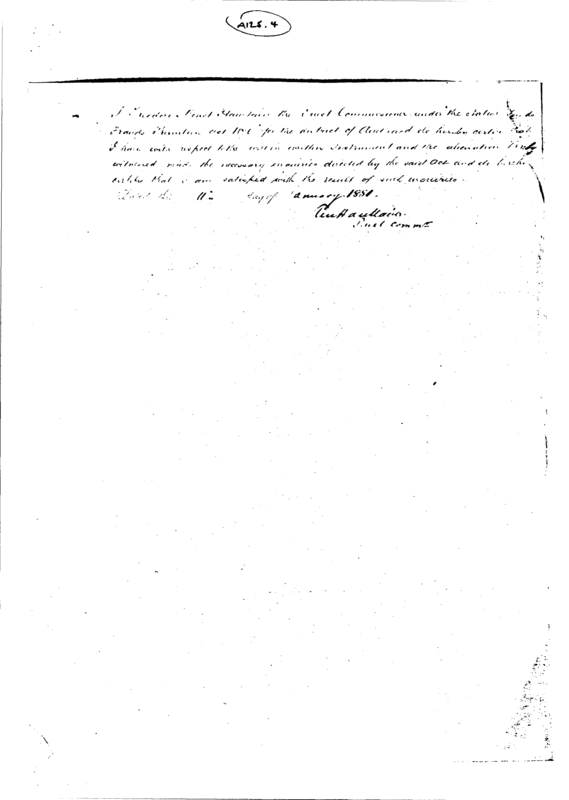 A128.4
I Theodore Minet Haultain the Trust Commissioner under the Native Lands
Frauds Prevention Act 188 for the district of Auckland do hereby certify that
I have with respect to the within written Instrument and the alienation thereby
witnessed made the necessary inquiries directed by the said Act and do further
certify that I am satisfied with the result of such inquiries.
Dated the 11th day of January 1881.
T M Haultain
Trust Commr